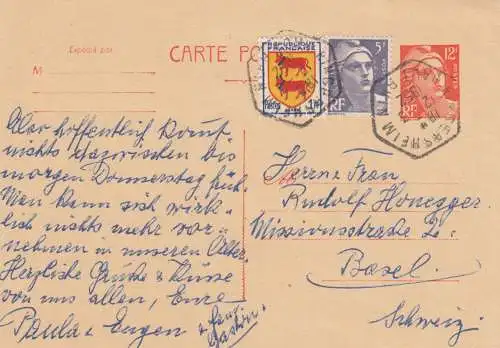 Expédié par
CARTE PO
M
REPUBLIQUE
FRANÇAISE
5F
RF
12F
POSTES
RF
Also hoffentlich kommt
nichts dazwischen bis
morgen Donnerstag früh.
Man kann sich wirk-
lich nichts mehr vor-
nehmen in unseren Alter.
Herzliche Grüsse & Küsse
von uns allen, Eure
Paula & Eugen &
Herrn Frau
Rudolf Honegger
Missionsstrasse 2.
Basel.
Schweiz.